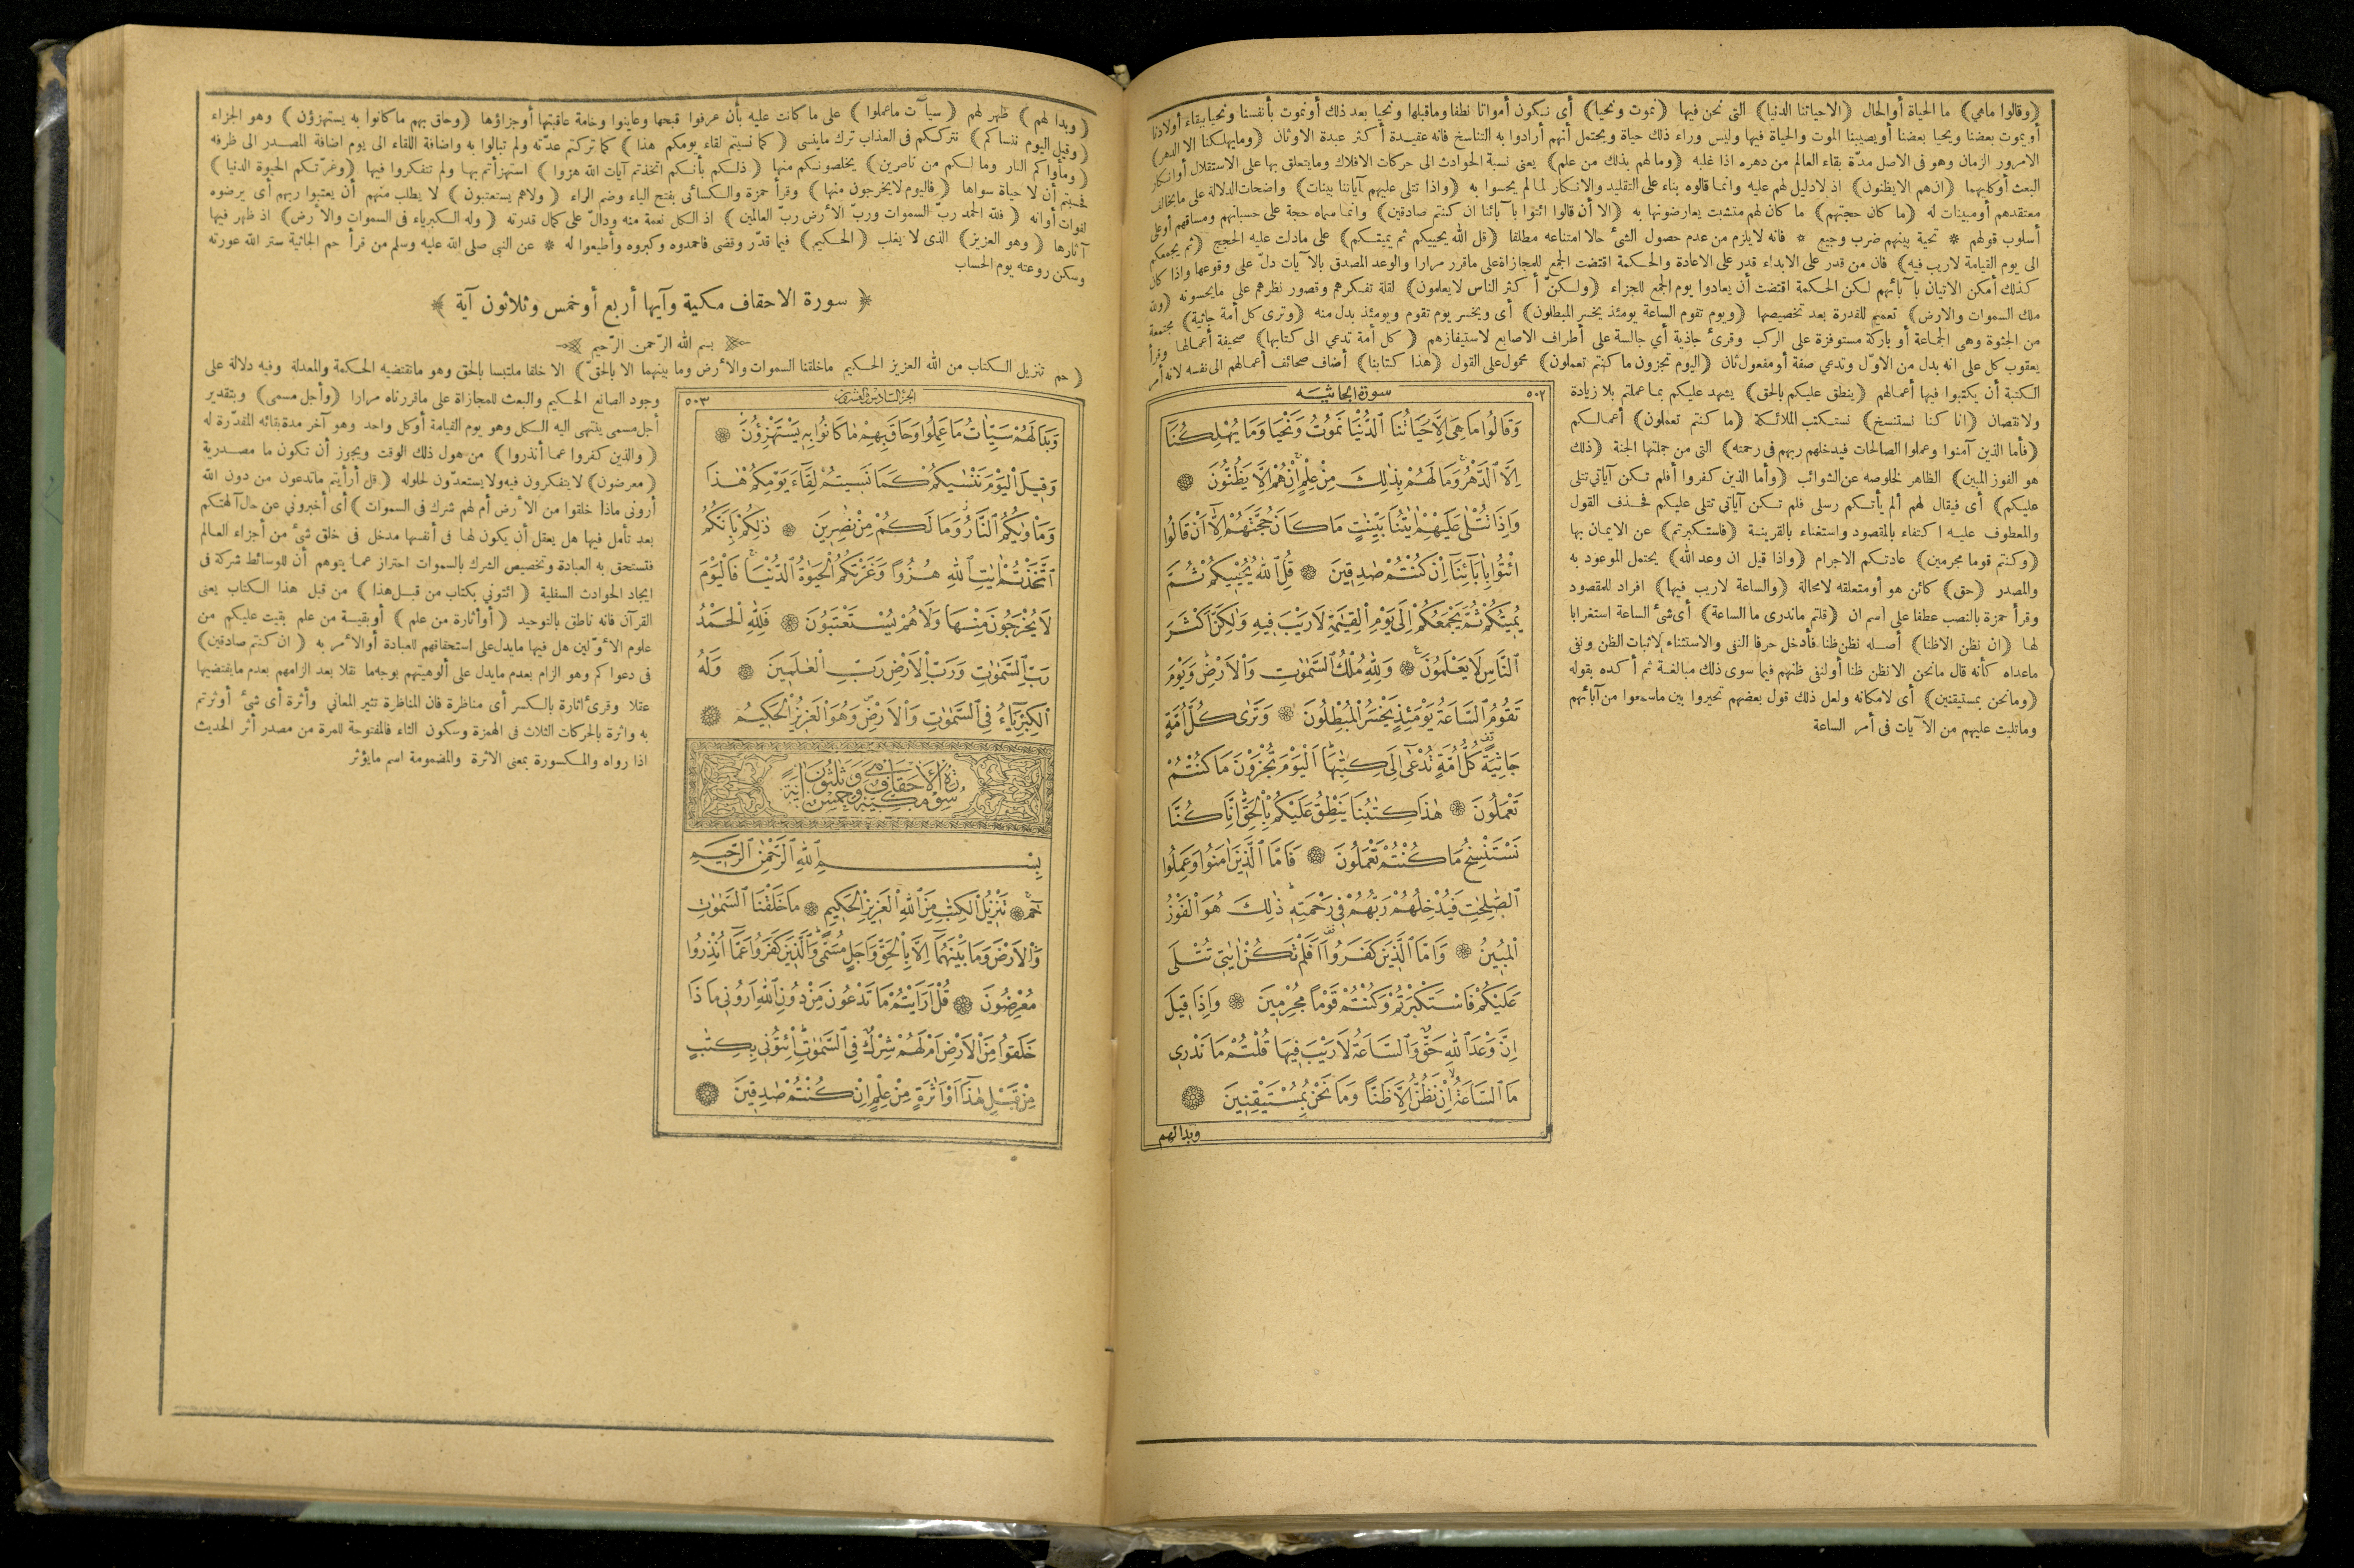 ﴿وقالوا ماهي﴾ ما الحياة أو الحال ﴿الاحياتنا الدنيا﴾ التى نحن فيها ﴿نموت ونحيا﴾ أى نكون أمواتا نطفا وماقبلها ونحيا بعد ذلك أو نموت بأنفسنا ونحيا ببقاء أولادنا
أو يموت بعضنا ويحيا بعضنا أو يصيبنا الموت والحياة فيها وليس وراء ذلك حياة ويحتمل أنهم أرادوا به التناسخ فانه عقيدة أكثر عبدة الاوثان ﴿ومايهلكنا الا الدهر﴾
الامرور الزمان وهو فى الاصل مدّة بقاء العالم من دهره اذا غلبه ﴿وما لهم بذلك من علم﴾ يعنى نسبة الحوادث الى حركات الافلاك ومايتعلق بها على الاستقلال أو انكار
البعث أوكليهما ﴿ان هم الايظنون﴾ اذ لادليل لهم عليه وانما قالوه بناء على التقليد والانكار لما لم يحسوا به ﴿واذا تتلى عليهم آياتنا بينات﴾ واضحات الدلالة على مايخالف
معتقدهم أومبينات له ﴿ما كان حجتهم﴾ ما كان لهم متشبث يعارضونها به ﴿الا أن قالوا ائتوا بآبائنا ان كنتم صادقين﴾ وانما سماه حجة على حسبانهم ومساقهم أوعلى
أسلوب قولهم * تحية بينهم ضرب وجيع * فانه لايلزم من عدم حصول الشئ حالا امتناعه مطلقا ﴿قل الله يحييكم ثم يميتكم﴾ على مادلت عليه الحجج ﴿ثم يجمعكم
الى يوم القيامة لاريب فيه﴾ فان من قدر على الابداء قدر على الاعادة والحكمة اقتضت الجمع للمجازاة على ماقرر مرارا والوعد المصدق بالآيات دلّ على وقوعها واذا كان
كذلك أمكن الاتيان بآبائهم لكن الحكمة اقتضت أن يعادوا يوم الجمع للجزاء ﴿ولكنّ أكثر الناس لايعلمون﴾ لقلة تفكرهم وقصور نظرهم على مايحسونه ﴿ولله
ملك السموات والارض﴾ تعميم للقدرة بعد تخصيصها ﴿ويوم تقوم الساعة يومئذ يخسر المبطلون﴾ أى ويخسر يوم تقوم ويومئذ بدل منه ﴿وترى كل أمة جاثية﴾ مجتمعة
من الجثوة وهى الجماعة أو باركة مستوفزة على الركب وقرئ جاذية أي جالسة على أطراف الاصابع لاستيفازهم ﴿كل أمة تدعي الى كتابها﴾ صحيفة أعمالها وقرأ
يعقوب كل على انه بدل من الاوّل وتدعي صفة أو مفعول ثان ﴿اليوم تجزون ما كنتم تعملون﴾ محمول على القول ﴿هذا كتابنا﴾ أضاف صحائف أعمالهم الى نفسه لانه أمر
الكتبة أن يكتبوا فيها أعمالهم ﴿ينطق عليكم بالحق﴾ يشهد عليكم بما عملتم بلا زيادة
ولانقصان ﴿انا كنا نستنسخ﴾ نستكتب الملائكة ﴿ما كنتم تعملون﴾ أعمالكم
﴿فأما الذين آمنوا وعملوا الصالحات فيدخلهم ربهم فى رحمته﴾ التى من جملتها الجنة ﴿ذلك
هو الفوز المبين﴾ الظاهر لخلوصه عن الشوائب ﴿وأما الذين كفروا أفلم تكن آياتي تتلى
عليكم﴾ أى فيقال لهم ألم يأتكم رسلى فلم تكن آياتى تتلى عليكم فحذف القول
والمعطوف عليه اكتفاء بالمقصود واستغناء بالقرينة ﴿فاستكبرتم﴾ عن الايمان بها
﴿وكنتم قوما مجرمين﴾ عادتكم الاجرام ﴿واذا قيل ان وعد الله﴾ يحتمل الموعود به
والمصدر ﴿حق﴾ كائن هو أو متعلقه لامحالة ﴿والساعة لاريب فيها﴾ افراد للمقصود
وقرأ حمزة بالنصب عطفا على اسم ان ﴿قلتم ماندرى ما الساعة﴾ أى شئ الساعة استغرابا
لها ﴿ان نظن الاظنا﴾ أصله نظن ظنا فأدخل حرفا النفى والاستثناء لاثبات الظن ونفى
ماعداه كأنه قال مانحن الانظن ظنا أولنفى ظنهم فيما سوى ذلك مبالغة ثم أكده بقوله
﴿ومانحن بمستيقنين﴾ أى لامكانه ولعل ذلك قول بعضهم تحيروا بين ماسمعوا من آبائهم
وماتليت عليهم من الآيات فى أمر الساعة
سورة الجاثية ٥٠٢
وَقَالُوا مَا هِيَ اِلَّا حَيَاتُنَا الدُّنْيَا نَمُوتُ وَنَحْيَا وَمَا يُهْلِكُنَا
اِلَّا الدَّهْرُ وَمَا لَهُمْ بِذٰلِكَ مِنْ عِلْمٍ اِنْ هُمْ اِلَّا يَظُنُّونَ
وَاِذَا تُتْلٰى عَلَيْهِمْ اٰيَاتُنَا بَيِّنَاتٍ مَا كَانَ حُجَّتَهُمْ اِلَّا اَنْ قَالُوا
ائْتُوا بِاٰبَائِنَا اِنْ كُنْتُمْ صَادِقِينَ قُلِ اللّٰهُ يُحْيِيكُمْ ثُمَّ
يُمِيتُكُمْ ثُمَّ يَجْمَعُكُمْ اِلٰى يَوْمِ الْقِيٰمَةِ لَا رَيْبَ فِيهِ وَلٰكِنَّ اَكْثَرَ
النَّاسِ لَا يَعْلَمُونَ وَلِلّٰهِ مُلْكُ السَّمٰوَاتِ وَالْاَرْضِ وَيَوْمَ
تَقُومُ السَّاعَةُ يَوْمَئِذٍ يَخْسَرُ الْمُبْطِلُونَ وَتَرٰى كُلَّ اُمَّةٍ
جَاثِيَةً كُلُّ اُمَّةٍ تُدْعٰى اِلٰى كِتَابِهَا اَلْيَوْمَ تُجْزَوْنَ مَا كُنْتُمْ
تَعْمَلُونَ هٰذَا كِتَابُنَا يَنْطِقُ عَلَيْكُمْ بِالْحَقِّ اِنَّا كُنَّا
نَسْتَنْسِخُ مَا كُنْتُمْ تَعْمَلُونَ فَاَمَّا الَّذِينَ اٰمَنُوا وَعَمِلُوا
الصَّالِحَاتِ فَيُدْخِلُهُمْ رَبُّهُمْ فِي رَحْمَتِهِ ذٰلِكَ هُوَ الْفَوْزُ
الْمُبِينُ وَاَمَّا الَّذِينَ كَفَرُوا اَفَلَمْ تَكُنْ اٰيَاتِي تُتْلٰى
عَلَيْكُمْ فَاسْتَكْبَرْتُمْ وَكُنْتُمْ قَوْمًا مُجْرِمِينَ وَاِذَا قِيلَ
اِنَّ وَعْدَ اللّٰهِ حَقٌّ وَالسَّاعَةُ لَا رَيْبَ فِيهَا قُلْتُمْ مَا نَدْرِي
مَا السَّاعَةُ اِنْ نَظُنُّ اِلَّا ظَنًّا وَمَا نَحْنُ بِمُسْتَيْقِنِينَ
وبدا لهم
﴿وبدا لهم﴾ ظهر لهم ﴿سيآت ماعملوا﴾ على ما كانت عليه بأن عرفوا قبحها وعاينوا وخامة عاقبتها أوجزاؤها ﴿وحاق بهم ماكانوا به يستهزؤن﴾ وهو الجزاء
﴿وقيل اليوم ننساكم﴾ نترككم فى العذاب ترك ماينسى ﴿كما نسيتم لقاء يومكم هذا﴾ كما تركتم عدّته ولم تبالوا به واضافة اللقاء الى يوم اضافة المصدر الى ظرفه
﴿ومأواكم النار وما لكم من ناصرين﴾ يخلصونكم منها ﴿ذلكم بأنكم اتخذتم آيات الله هزوا﴾ استهزأتم بها ولم تتفكروا فيها ﴿وغرّتكم الحيوة الدنيا﴾
فحسبتم أن لا حياة سواها ﴿فاليوم لايخرجون منها﴾ وقرأ حمزة والكسائى بفتح الياء وضم الراء ﴿ولاهم يستعتبون﴾ لا يطلب منهم أن يعتبوا ربهم أى يرضوه
لفوات أوانه ﴿فلله الحمد ربّ السموات وربّ الأرض ربّ العالمين﴾ اذ الكل نعمة منه ودالّ على كمال قدرته ﴿وله الكبرياء فى السموات والأرض﴾ اذ ظهر فيها
آثارها ﴿وهو العزيز﴾ الذى لا يغلب ﴿الحكيم﴾ فيما قدّر وقضى فاحمدوه وكبروه وأطيعوا له * عن النبى صلى الله عليه وسلم من قرأ حم الجاثية ستر الله عورته
وسكن روعته يوم الحساب
﴿سورة الاحقاف مكية وآيها أربع أوخمس وثلاثون آية﴾
بسم الله الرّحمن الرّحيم
﴿حم تنزيل الكتاب من الله العزيز الحكيم ماخلقنا السموات والأرض وما بينهما الا بالحقّ﴾ الا خلقا ملتبسا بالحق وهو ماتقتضيه الحكمة والمعدلة وفيه دلالة على
وجود الصانع الحكيم والبعث للمجازاة على ماقررناه مرارا ﴿وأجل مسمى﴾ وبتقدير
أجل مسمى ينتهى اليه الكل وهو يوم القيامة أوكل واحد وهو آخر مدة بقائه المقدّرة له
﴿والذين كفروا عما أنذروا﴾ من هول ذلك الوقت ويجوز أن تكون ما مصدرية
﴿معرضون﴾ لايتفكرون فيه ولايستعدّون لحلوله ﴿قل أرأيتم ماتدعون من دون الله
أرونى ماذا خلقوا من الأرض أم لهم شرك فى السموات﴾ أى أخبرونى عن حال آلهتكم
بعد تأمل فيها هل يعقل أن يكون لها فى أنفسها مدخل فى خلق شئ من أجزاء العالم
فتستحق به العبادة وتخصيص الشرك بالسموات احتراز عما يتوهم أن للوسائط شركة فى
ايجاد الحوادث السفلية ﴿ائتونى بكتاب من قبل هذا﴾ من قبل هذا الكتاب يعنى
القرآن فانه ناطق بالتوحيد ﴿أوأثارة من علم﴾ أوبقية من علم بقيت عليكم من
علوم الأوّلين هل فيها مايدل على استحقاقهم للعبادة أوالأمر به ﴿ان كنتم صادقين﴾
فى دعواكم وهو الزام بعدم مايدل على ألوهيتهم بوجه ما نقلا بعد الزامهم بعدم مايقتضيها
عقلا وقرئ اثارة بالكسر أى مناظرة فان المناظرة تثير المعانى وأثرة أى شئ أوثرتم
به واثرة بالحركات الثلاث فى الهمزة وسكون الثاء فالمفتوحة للمرة من مصدر أثر الحديث
اذا رواه والمكسورة بمعنى الاثرة والمضمومة اسم مايؤثر
الجزء السادس والعشرون ٥٠٣
وَبَدَا لَهُمْ سَيِّاٰتُ مَا عَمِلُوا وَحَاقَ بِهِمْ مَا كَانُوا بِهِ يَسْتَهْزِؤُنَ
وَقِيلَ الْيَوْمَ نَنْسٰيكُمْ كَمَا نَسِيتُمْ لِقَاءَ يَوْمِكُمْ هٰذَا
وَمَاْوٰيكُمُ النَّارُ وَمَا لَكُمْ مِنْ نَاصِرِينَ ذٰلِكُمْ بِاَنَّكُمُ
اتَّخَذْتُمْ اٰيَاتِ اللّٰهِ هُزُوًا وَغَرَّتْكُمُ الْحَيٰوةُ الدُّنْيَا فَالْيَوْمَ
لَا يُخْرَجُونَ مِنْهَا وَلَا هُمْ يُسْتَعْتَبُونَ فَلِلّٰهِ الْحَمْدُ
رَبِّ السَّمٰوَاتِ وَرَبِّ الْاَرْضِ رَبِّ الْعَالَمِينَ وَلَهُ
الْكِبْرِيَاءُ فِي السَّمٰوَاتِ وَالْاَرْضِ وَهُوَ الْعَزِيزُ الْحَكِيمُ
سورة الأحقاف مكية وهي خمس وثلثون آية
بِسْمِ اللّٰهِ الرَّحْمٰنِ الرَّحِيمِ
حٰمٓ تَنْزِيلُ الْكِتَابِ مِنَ اللّٰهِ الْعَزِيزِ الْحَكِيمِ مَا خَلَقْنَا السَّمٰوَاتِ
وَالْاَرْضَ وَمَا بَيْنَهُمَا اِلَّا بِالْحَقِّ وَاَجَلٍ مُسَمًّى وَالَّذِينَ كَفَرُوا عَمَّا اُنْذِرُوا
مُعْرِضُونَ قُلْ اَرَاَيْتُمْ مَا تَدْعُونَ مِنْ دُونِ اللّٰهِ اَرُونِي مَا ذَا
خَلَقُوا مِنَ الْاَرْضِ اَمْ لَهُمْ شِرْكٌ فِي السَّمٰوَاتِ اِئْتُونِي بِكِتَابٍ
مِنْ قَبْلِ هٰذَا اَوْ اَثَارَةٍ مِنْ عِلْمٍ اِنْ كُنْتُمْ صَادِقِينَ